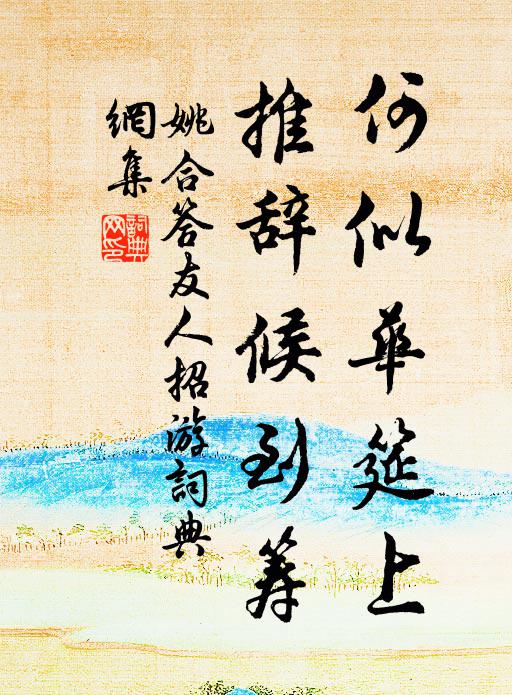 何似華筵上
推辞候到筹
姚合答友人招游詞典
網集
詞典
网印